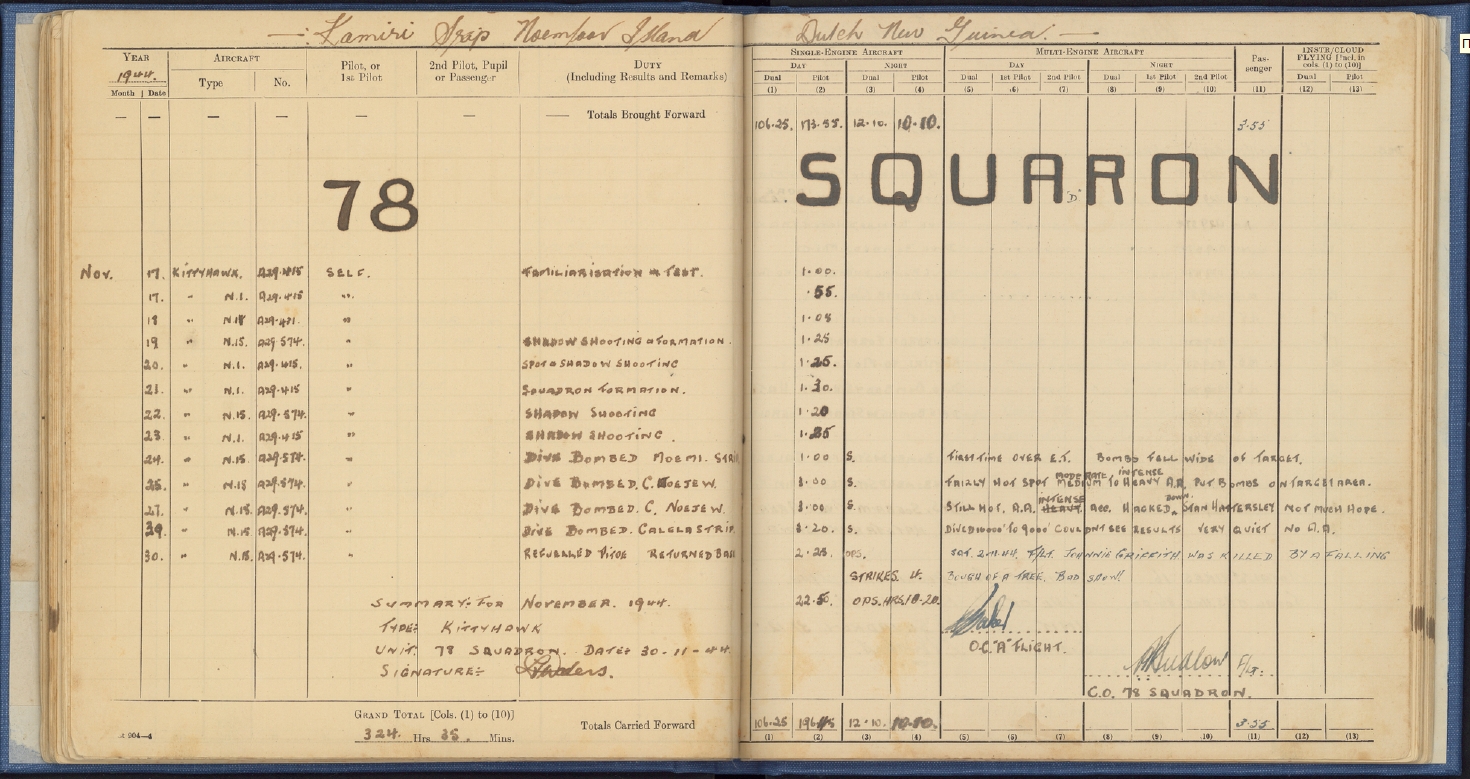 —: Kamiri Srip Noemfoor Island Dutch New Guinea. —
YEAR AIRCRAFT Pilot, or 1st Pilot 2nd Pilot, Pupil or Passenger DUTY (Including Results and Remarks) SINGLE-ENGINE AIRCRAFT MULTI-ENGINE AIRCRAFT Pas-senger INSTR/CLOUD FLYING [Incl. in cols. (1) to (10)]
1944. Type No. DAY NIGHT DAY NIGHT
Month Date Dual Pilot Dual Pilot Dual 1st Pilot 2nd Pilot Dual 1st Pilot 2nd Pilot Dual Pilot
(1) (2) (3) (4) (5) (6) (7) (8) (9) (10) (11) (12) (13)
— — — — — — — — Totals Brought Forward 106.25. 173.55. 12.10. 10.10. 3.55
78 SQUARON
"D"
Nov. 17. KITTYHAWK. A29.415 SELF. FAMILIARISATION & TEST. 1.00.
17. " N.1. A29.415 " .55.
18 " N.18 " 1.05
19 " N.15. A29.574. " SHADOW SHOOTING & FORMATION. 1.25
20. " N.1. A29.415. " SPOT & SHADOW SHOOTING 1.25.
21. " N.1. A29.415 " SQUADRON FORMATION. 1.30.
22. " N.15. A29.574. " SHADOW SHOOTING 1.20
23. " N.1. A29.415 " SHADOW SHOOTING. 1.25
24. " N.15. A29.574. " DIVE BOMBED MOEMI. STRIP 1.00 S. FIRST TIME OVER E.T. BOMBS FELL WIDE OF TARGET.
25. " A29.574. " DIVE BOMBED. C. NOEJEW. 3.00 S. FAIRLY HOT SPOT MODERATE MEDIUM TO INTENSE HEAVY A.A. PUT BOMBS ON TARGET AREA.
27. " N.15. A29.574. " DIVE BOMBED. C. NOEJEW. 3.00 S. STILL HOT. A.A. INTENSE HEAVY ACC. HACKED DOWN. STAN HATTERSLEY NOT MUCH HOPE.
29. " N.15 A29.574. " DIVE BOMBED. CALELA STRIP. 3.20. S. DIVED 10000' TO 9000' COULDNT SEE RESULTS VERY QUIET NO A.A.
30. " N.15. A29.574. " REFUELLED PITOE RETURNED BASE 2.25. OPS. F/LT. JOHNNIE GRIFFITH WAS KILLED BY A FALLING
STRIKES 4. BOUGH OF A TREE. BAD SHOW!
SUMMARY: FOR NOVEMBER. 1944. 22.50. OPS. HRS. 10.20.
TYPE: KITTYHAWK
UNIT. 78 SQUADRON. DATE: 30-11-44. O.C. "A" FLIGHT.
SIGNATURE:- F/Lt.
C.O. 78 SQUADRON.
GRAND TOTAL [Cols. (1) to (10)]
324 Hrs. 35. Mins. Totals Carried Forward 106.25 196.45 12.10. 10.10. 3.55
904—4 (1) (2) (3) (4) (5) (6) (7) (8) (9) (10) (11) (12) (13)